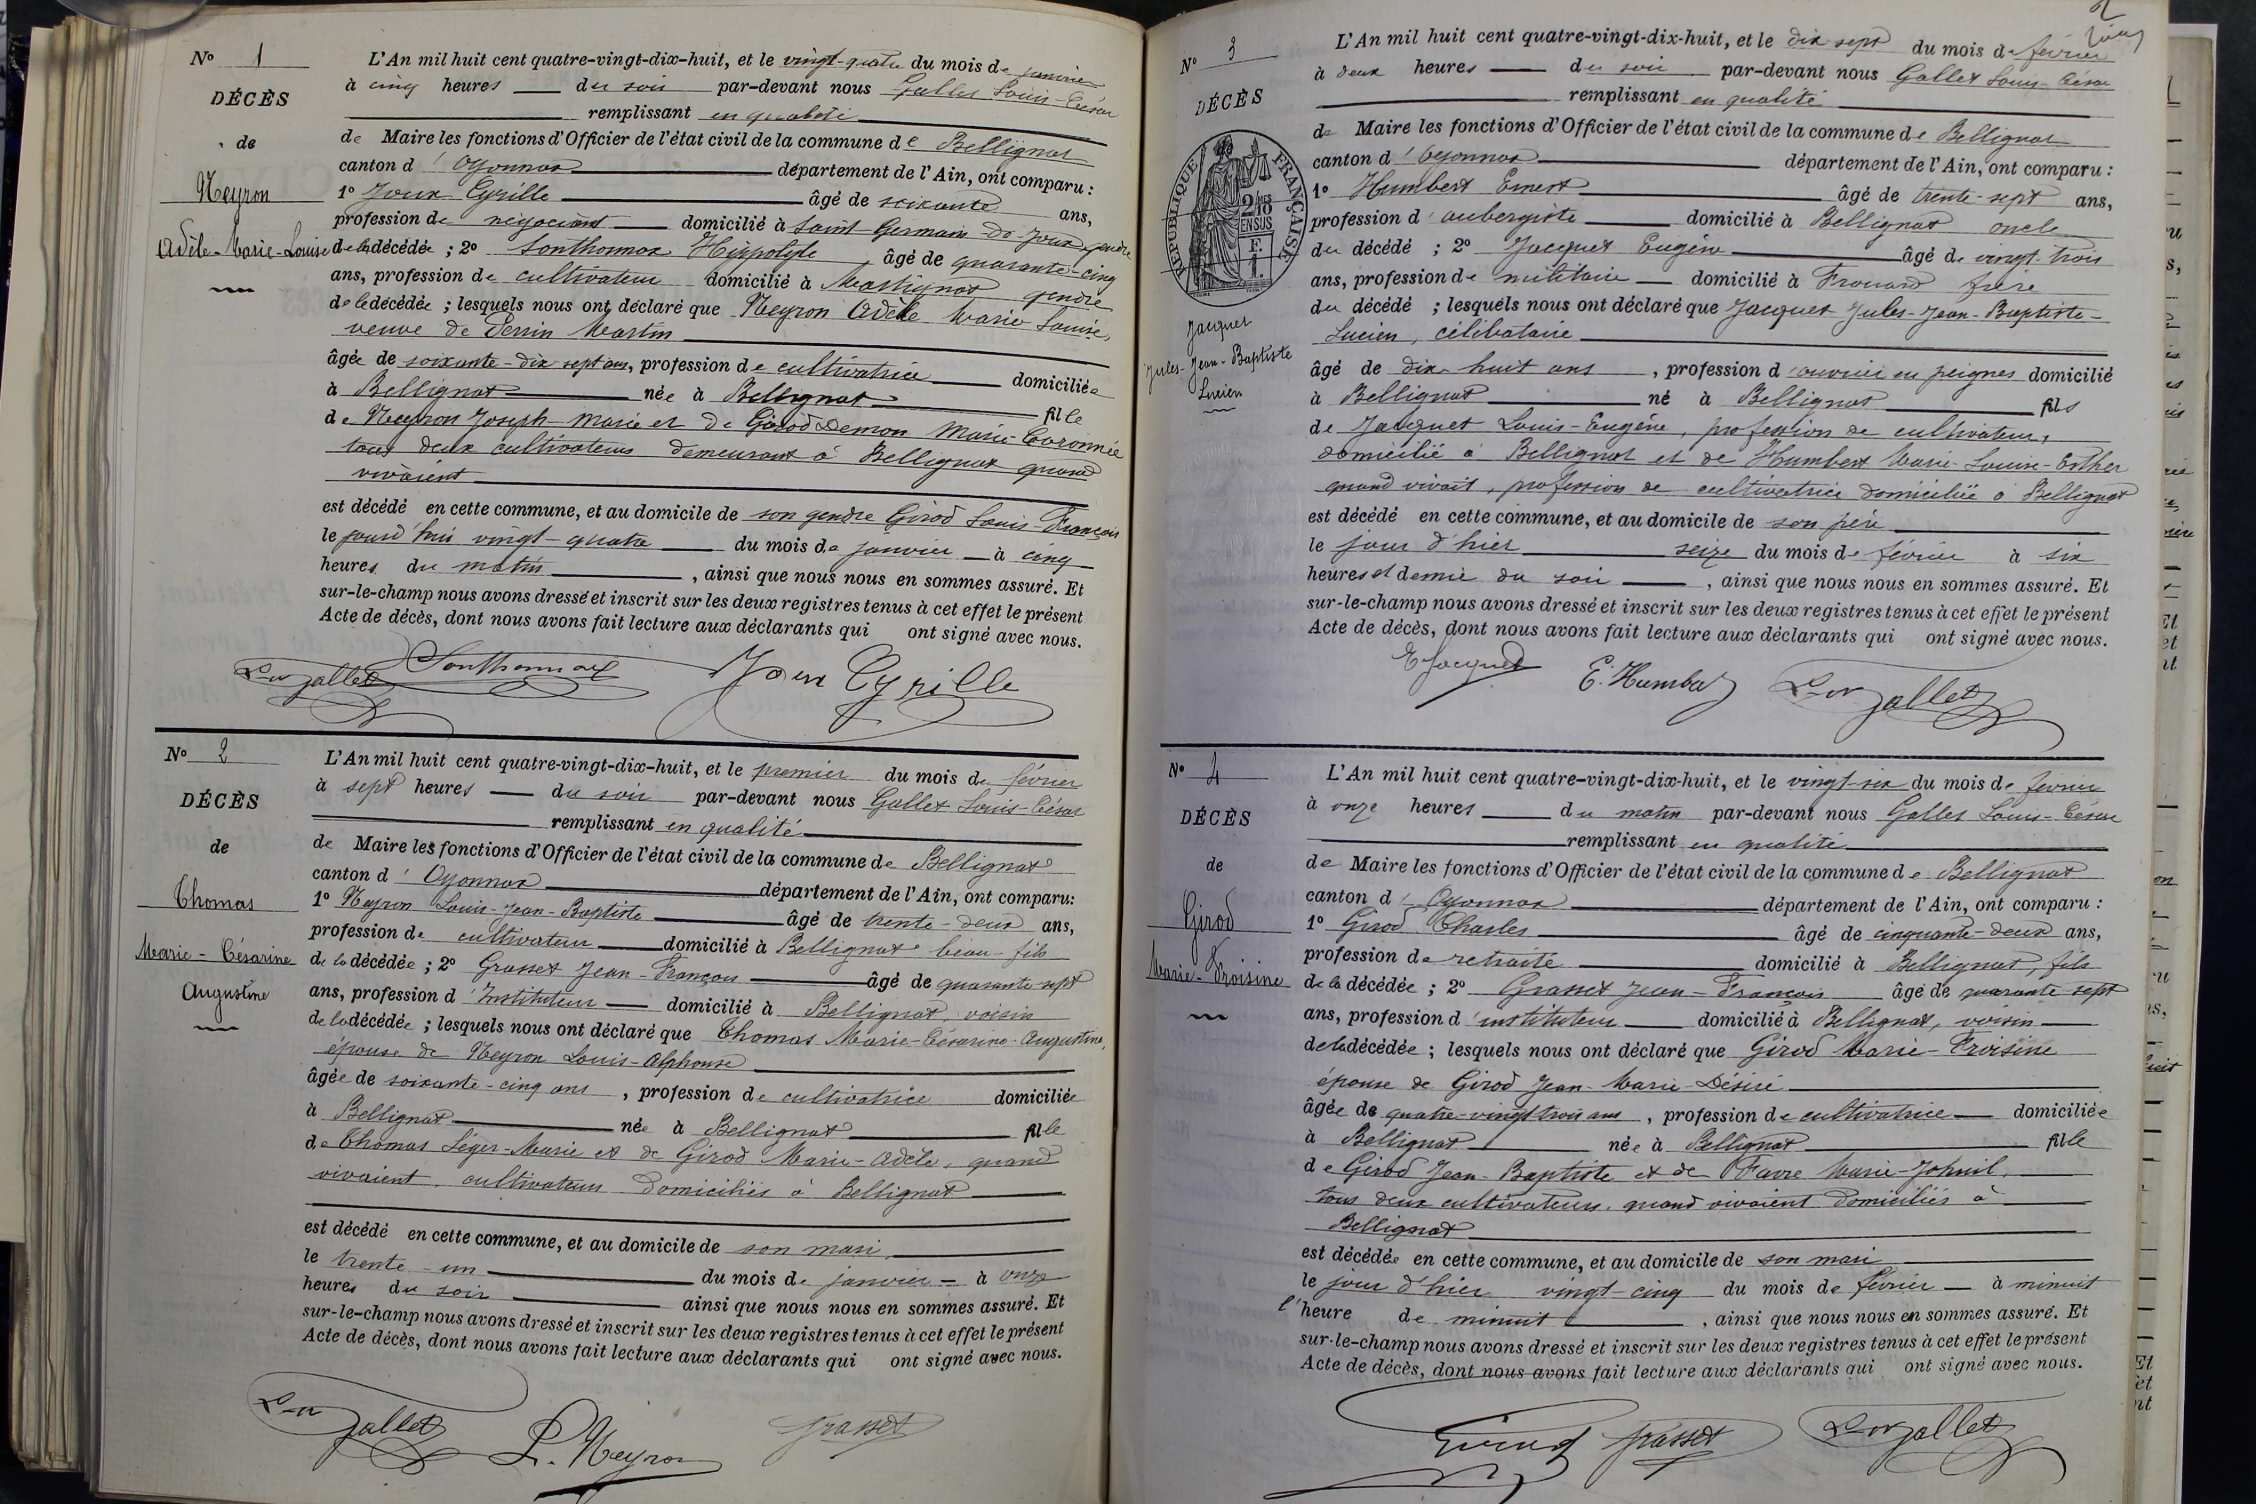 N° 1
DÉCÈS
de
Neyron
Adèle-Marie-Louise
L'An mil huit cent quatre-vingt-dix-huit, et le vingt-quatre du mois de janvier
à cinq heures du soir par-devant nous Gallet Louis-César
remplissant en qualité
de Maire les fonctions d'Officier de l'état civil de la commune de Bellignat
canton d'Oyonnax département de l'Ain, ont comparu :
1° Joux Cyrille âgé de soixante ans,
profession de négociant domicilié à Saint Germain de Joux, gendre
de la décédée ; 2° Sonthonnax Hippolyte âgé de quarante-cinq
ans, profession de cultivateur domicilié à Martignat gendre
de la décédée ; lesquels nous ont déclaré que Neyron Adèle Marie Louise,
veuve de Perrin Martin
âgée de soixante-dix sept ans, profession de cultivatrice domiciliée
à Bellignat née à Bellignat fille
de Neyron Joseph-Marie et de Girod Demon Marie-Couronnée
tous deux cultivateurs demeurant à Bellignat quand
vivaient
est décédé en cette commune, et au domicile de son gendre Girod Louis-François
le jourd'hui vingt-quatre du mois de janvier à cinq
heures du matin, ainsi que nous nous en sommes assuré. Et
sur-le-champ nous avons dressé et inscrit sur les deux registres tenus à cet effet le présent
Acte de décès, dont nous avons fait lecture aux déclarants qui ont signé avec nous.
Gallet Sonthonnax Joux Cyrille
N° 2
DÉCÈS
de
Thomas
Marie-Césarine
Augustine
L'An mil huit cent quatre-vingt-dix-huit, et le premier du mois de février
à sept heures du soir par-devant nous Gallet Louis-César
remplissant en qualité
de Maire les fonctions d'Officier de l'état civil de la commune de Bellignat
canton d'Oyonnax département de l'Ain, ont comparu:
1° Neyron Louis-Jean-Baptiste âgé de trente-deux ans,
profession de cultivateur domicilié à Bellignat beau-fils
de la décédée ; 2° Grasset Jean-François âgé de quarante-sept
ans, profession d'Instituteur domicilié à Bellignat, voisin
de la décédée ; lesquels nous ont déclaré que Thomas Marie-Césarine-Augustine,
épouse de Neyron Louis-Alphonse
âgée de soixante-cinq ans, profession de cultivatrice domiciliée
à Bellignat née à Bellignat fille
de Thomas Léger-Marie et de Girod Marie-Adèle, quand
vivaient, cultivateurs domiciliés à Bellignat
est décédé en cette commune, et au domicile de son mari
le trente-un du mois de janvier à onze
heures du soir ainsi que nous nous en sommes assuré. Et
sur-le-champ nous avons dressé et inscrit sur les deux registres tenus à cet effet le présent
Acte de décès, dont nous avons fait lecture aux déclarants qui ont signé avec nous.
Gallet L. Neyron Grasset
2
N° 3
DÉCÈS
RÉPUBLIQUE FRANÇAISE
2/10 EN SUS
Jacquet
Jules-Jean-Baptiste
Lucien
L'An mil huit cent quatre-vingt-dix-huit, et le dix sept du mois de février
à deux heures du soir par-devant nous Gallet Louis-César
remplissant en qualité
de Maire les fonctions d'Officier de l'état civil de la commune de Bellignat
canton d'Oyonnax département de l'Ain, ont comparu :
1° Humbert Ernest âgé de trente-sept ans,
profession d'aubergiste domicilié à Bellignat oncle
du décédé ; 2° Jacquet Eugène âgé de vingt-trois
ans, profession de militaire domicilié à Frouard frère
du décédé ; lesquels nous ont déclaré que Jacquet Jules-Jean-Baptiste-
Lucien, célibataire
âgé de dix-huit ans, profession d'ouvrier en peignes domicilié
à Bellignat né à Bellignat fils
de Jacquet Louis-Eugène, profession de cultivateur,
domicilié à Bellignat et de Humbert Marie-Louise-Esther
quand vivait, profession de cultivatrice domiciliée à Bellignat
est décédé en cette commune, et au domicile de son père
le jour d'hier seize du mois de février à six
heures et demie du soir, ainsi que nous nous en sommes assuré. Et
sur-le-champ nous avons dressé et inscrit sur les deux registres tenus à cet effet le présent
Acte de décès, dont nous avons fait lecture aux déclarants qui ont signé avec nous.
E Jacquet E. Humbert Gallet
N° 4
DÉCÈS
de
Girod
Marie-Froisine
L'An mil huit cent quatre-vingt-dix-huit, et le vingt-six du mois de février
à onze heures du matin par-devant nous Gallet Louis-César
remplissant en qualité
de Maire les fonctions d'Officier de l'état civil de la commune de Bellignat
canton d'Oyonnax département de l'Ain, ont comparu :
1° Girod Charles âgé de cinquante-deux ans,
profession de retraité domicilié à Bellignat, fils
de la décédée ; 2° Grasset Jean-François âgé de quarante sept
ans, profession d'instituteur domicilié à Bellignat, voisin
de la décédée ; lesquels nous ont déclaré que Girod Marie-Froisine
épouse de Girod Jean-Marie-Désiré
âgée de quatre-vingt trois ans, profession de cultivatrice domiciliée
à Bellignat née à Bellignat fille
de Girod Jean-Baptiste et de Favre Marie
tous deux cultivateurs, quand vivaient domiciliés à
Bellignat
est décédée en cette commune, et au domicile de son mari
le jour d'hier vingt-cinq du mois de février à minuit
l'heure de minuit, ainsi que nous nous en sommes assuré. Et
sur-le-champ nous avons dressé et inscrit sur les deux registres tenus à cet effet le présent
Acte de décès, dont nous avons fait lecture aux déclarants qui ont signé avec nous.
Girod Grasset Gallet